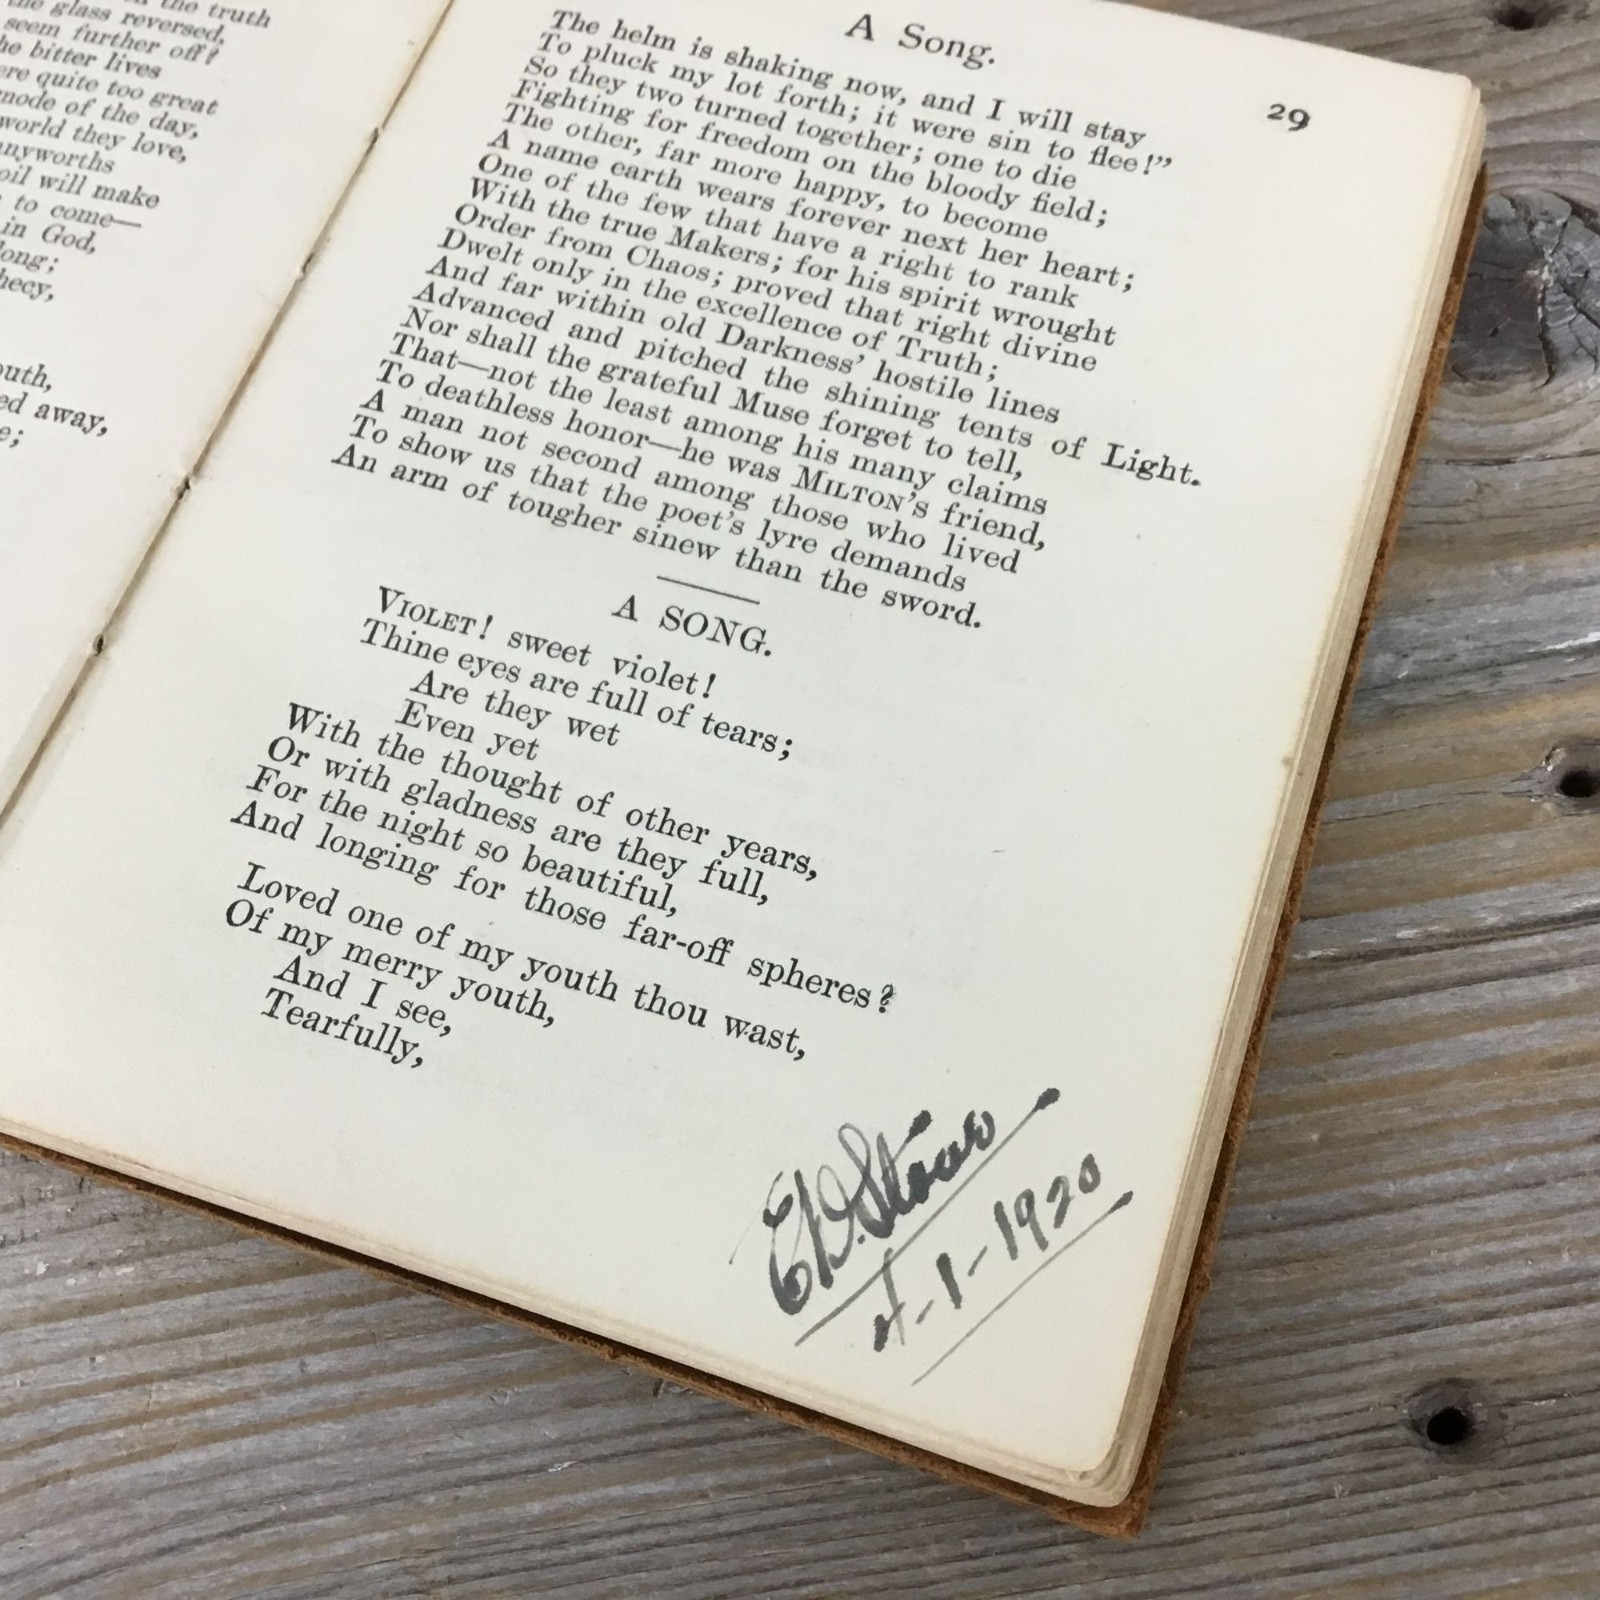 the truth
the glass reversed,
seem further off?
bitter lives
quite too great
mode of the day,
world they love,
will make
to come—
in God,
away,
A Song.
29
The helm is shaking now, and I will stay
To pluck my lot forth; it were sin to flee!"
So they two turned together; one to die
Fighting for freedom on the bloody field;
The other, far more happy, to become
A name earth wears forever next her heart;
One of the few that have a right to rank
With the true Makers; for his spirit wrought
Order from Chaos; proved that right divine
Dwelt only in the excellence of Truth;
And far within old Darkness' hostile lines
Advanced and pitched the shining tents of Light.
Nor shall the grateful Muse forget to tell,
That—not the least among his many claims
To deathless honor—he was MILTON's friend,
A man not second among those who lived
To show us that the poet's lyre demands
An arm of tougher sinew than the sword.
A SONG.
VIOLET! sweet violet!
Thine eyes are full of tears;
Are they wet
Even yet
With the thought of other years,
Or with gladness are they full,
For the night so beautiful,
And longing for those far-off spheres?
Loved one of my youth thou wast,
Of my merry youth,
And I see,
Tearfully,
4-1-1920